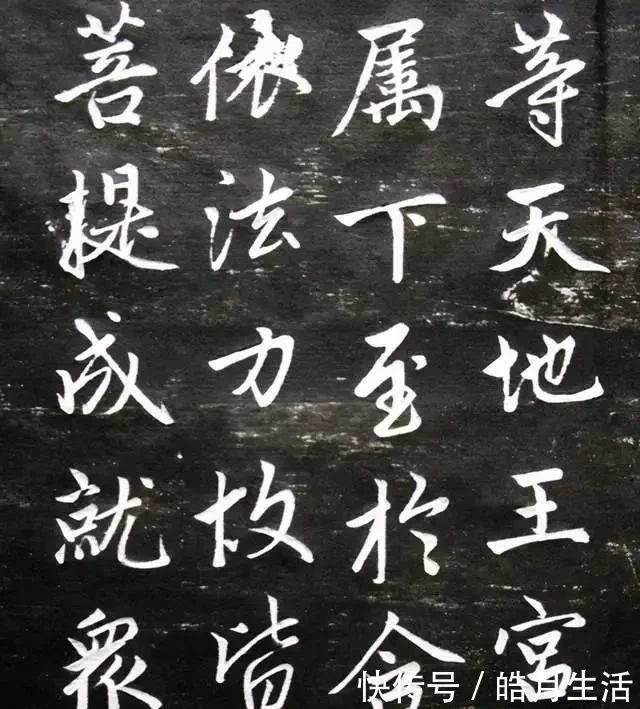 等天地王宫
属下至於含
依法力故皆
菩提成就衆
快传号 / 皓月生活